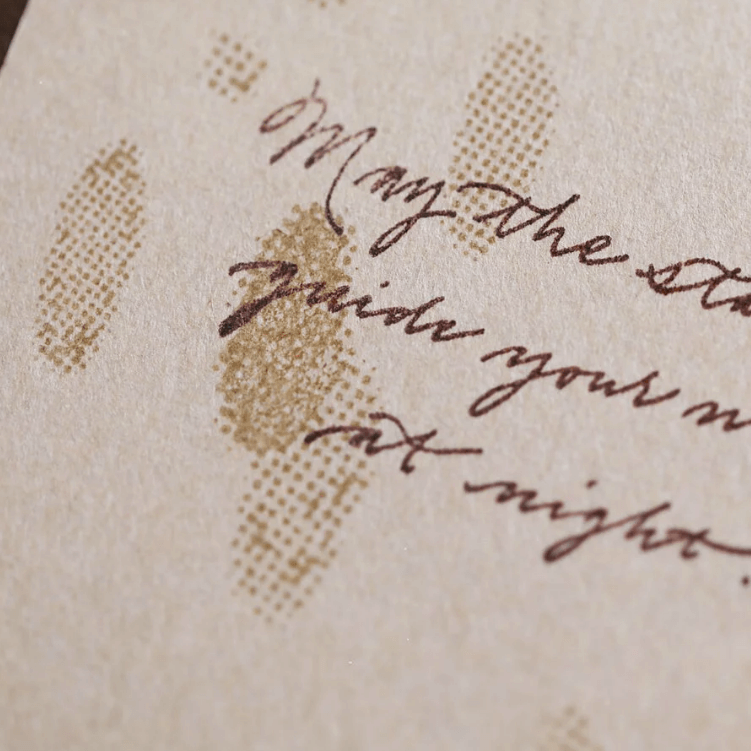 May the sta
guide your n
at night.